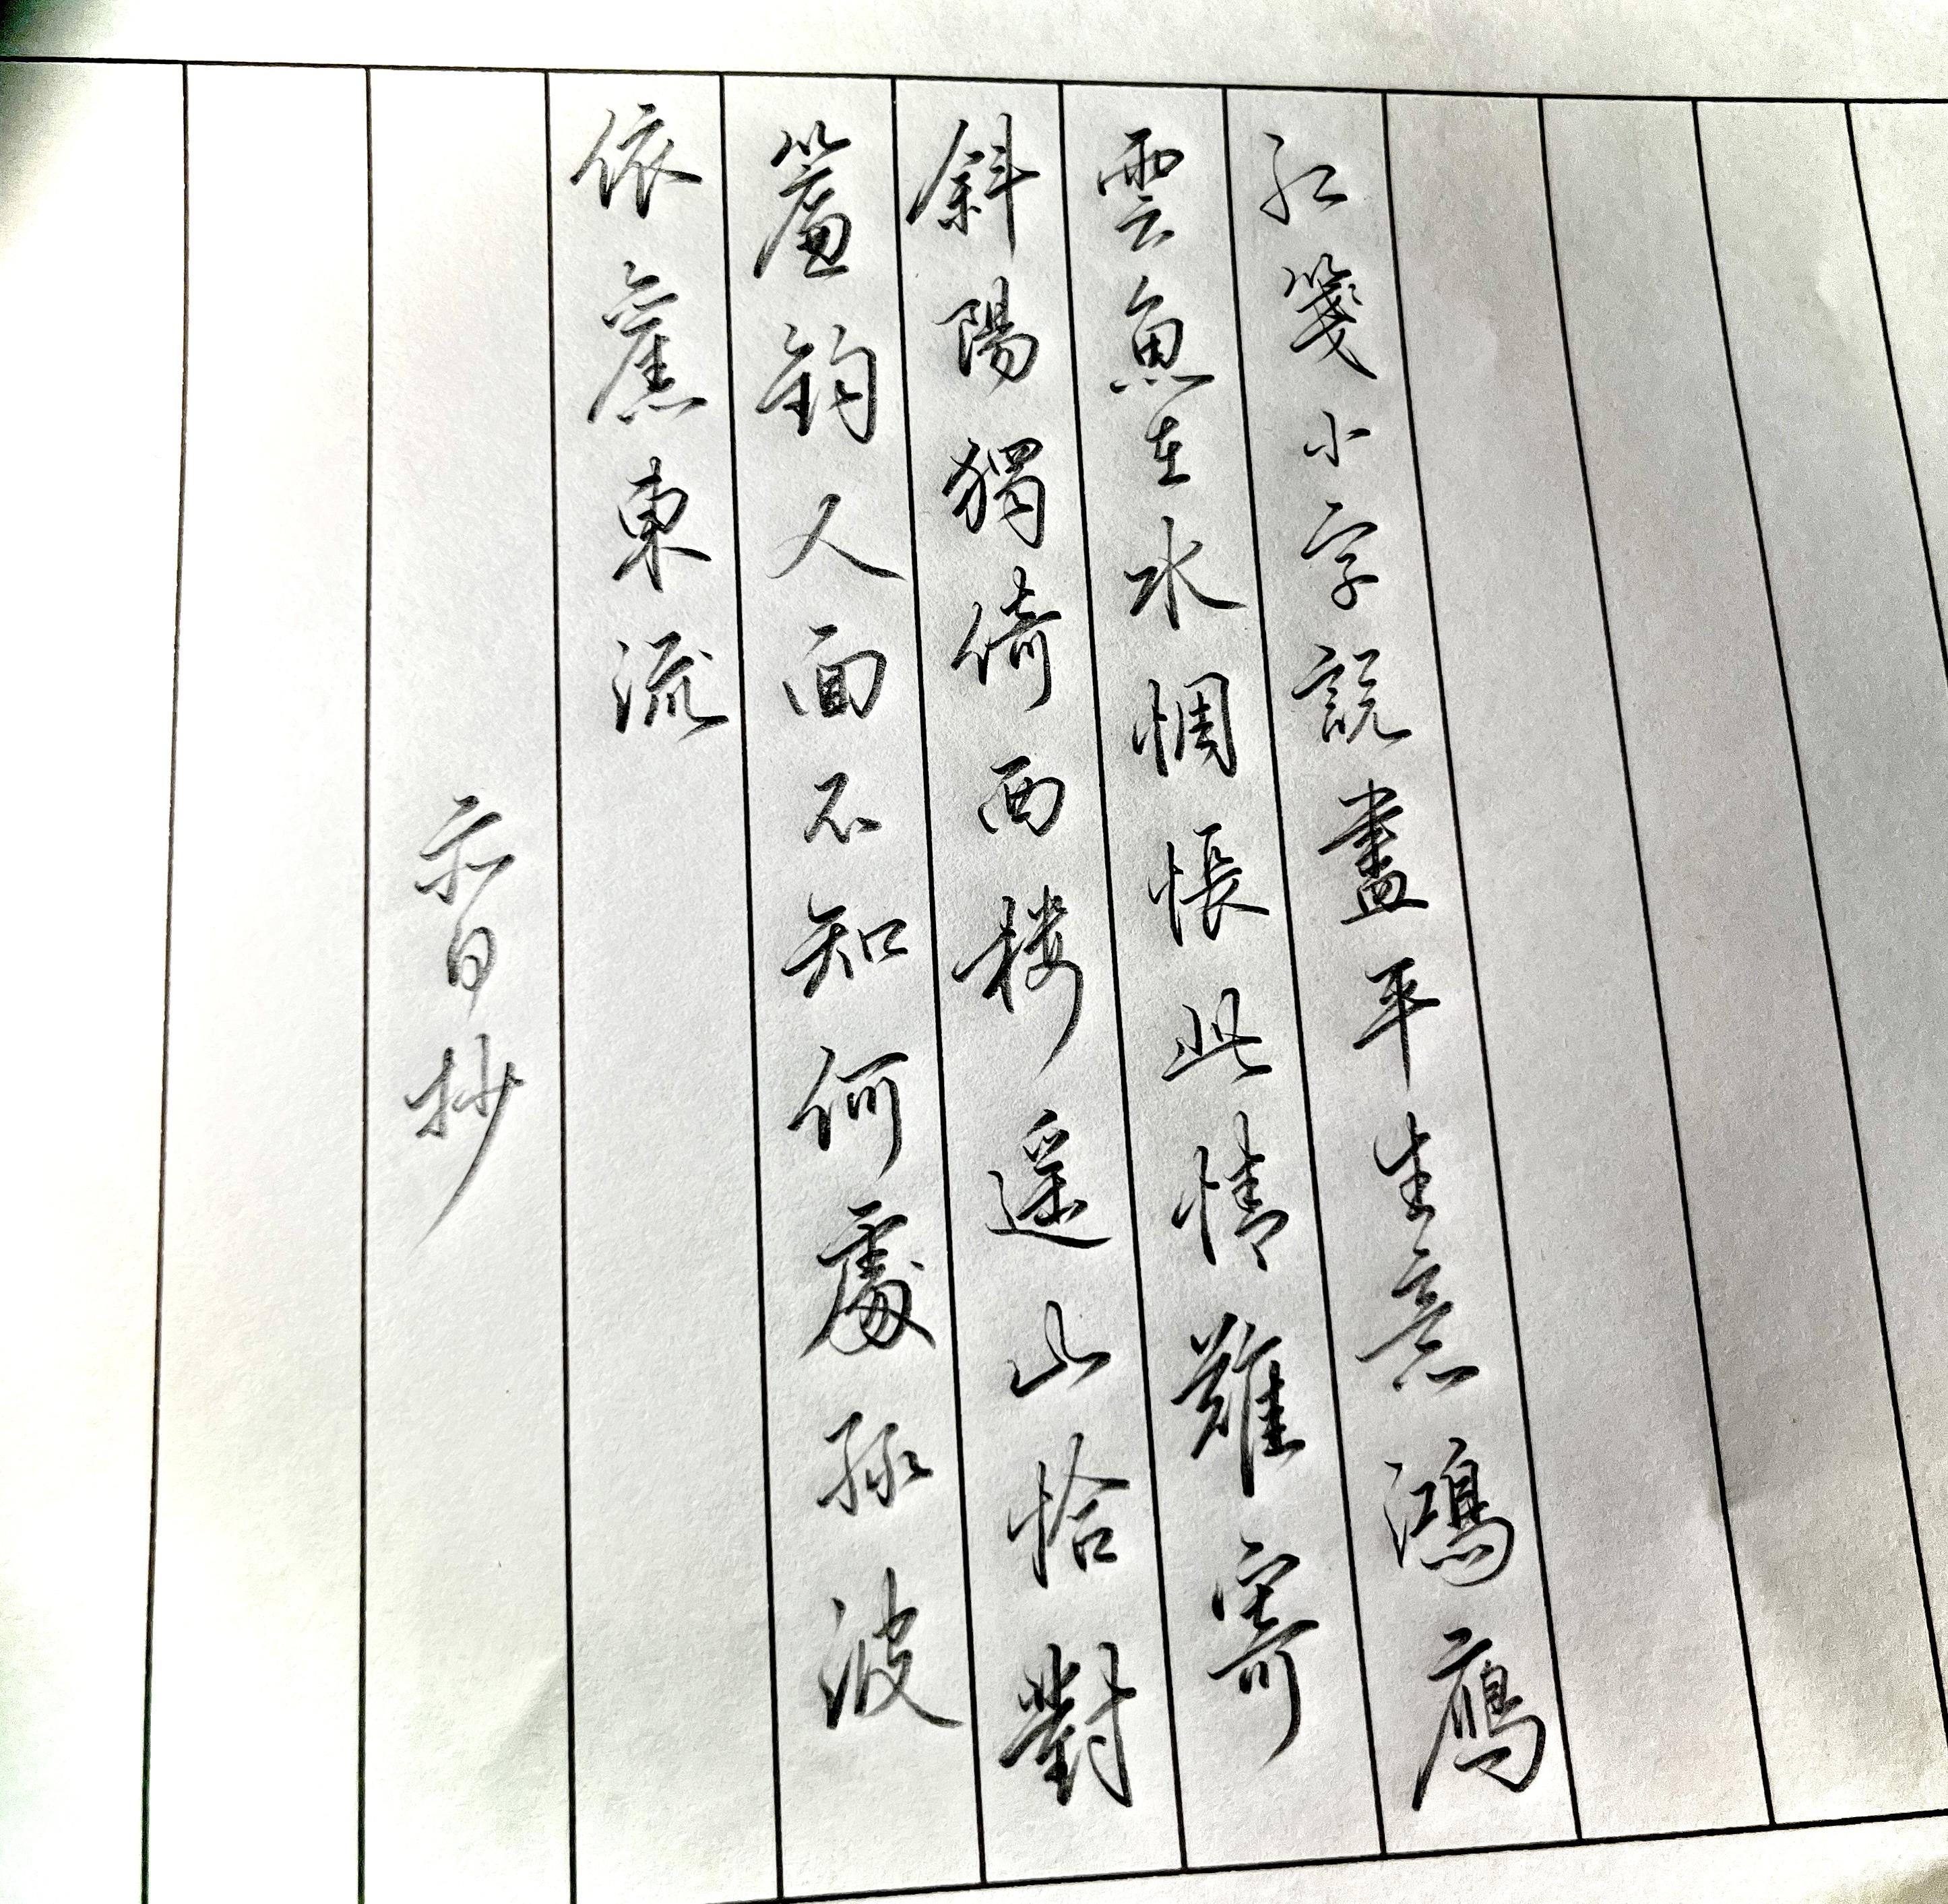 紅箋小字說盡平生意鴻鴈
雲魚在水惆悵此情難寄
斜陽獨倚西楼遥山恰對
簾鈎人面不知何處綠波
依舊東流
抄